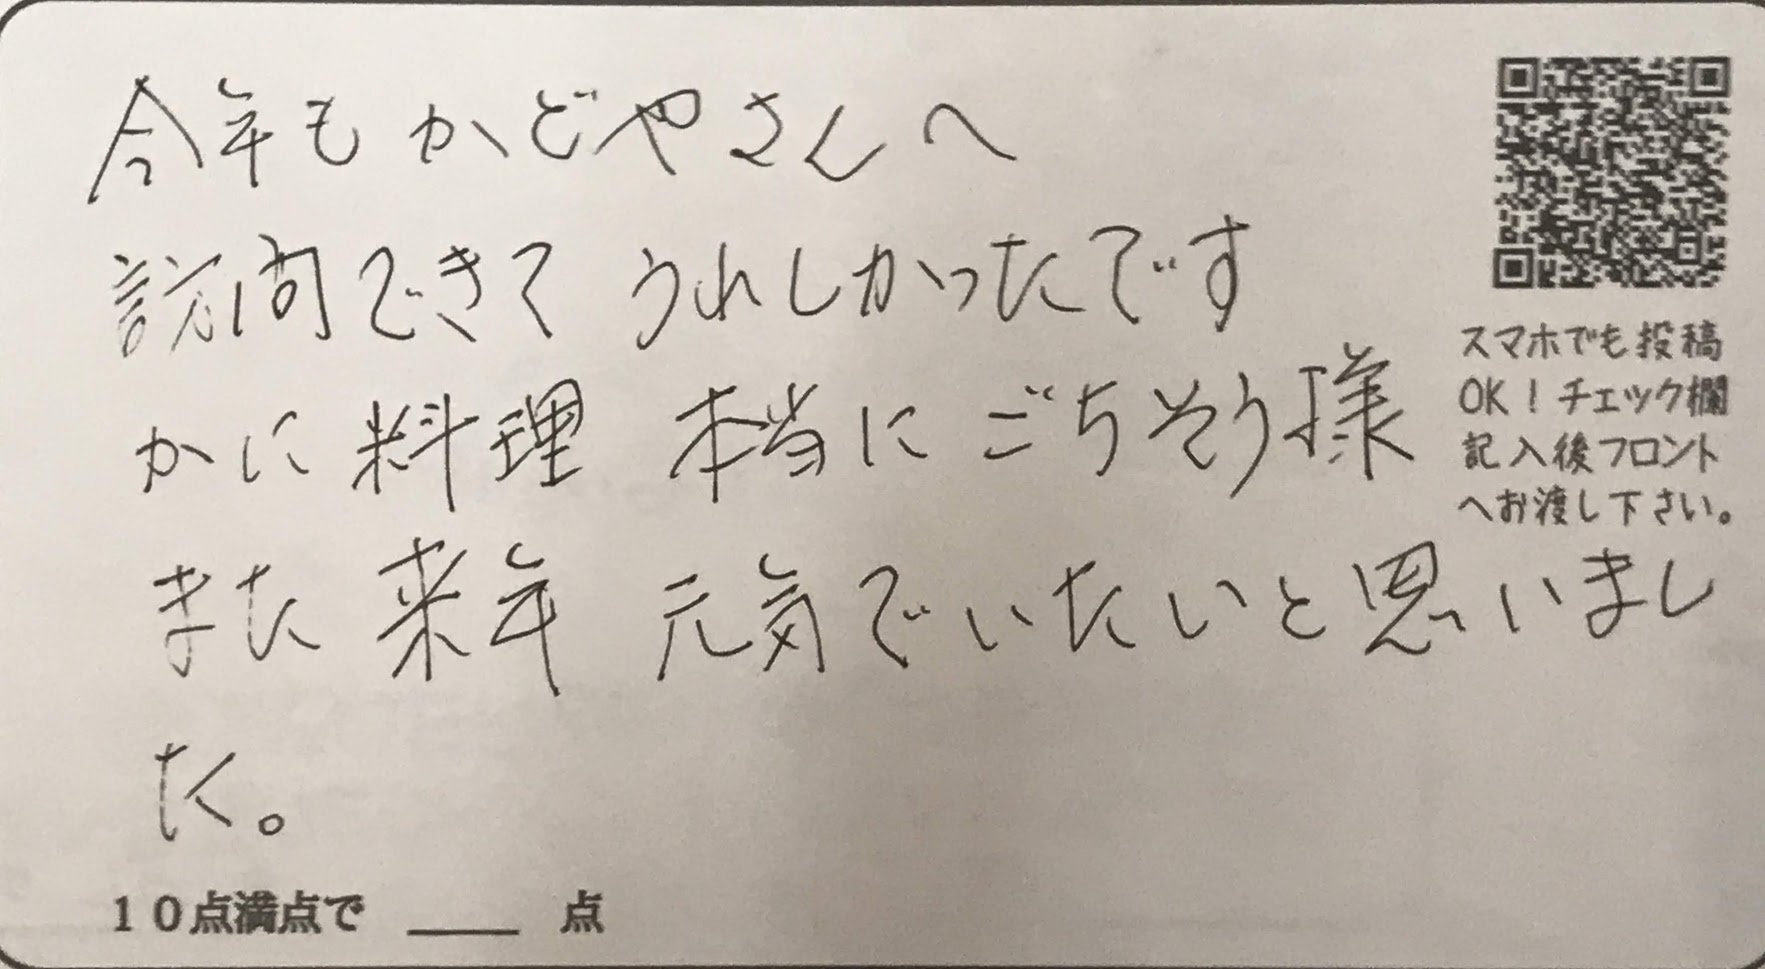 今年もかどやさんへ
訪問できて うれしかったです
かに料理 本当にごちそう様
また来年 元気でいたいと思いまし
た。
10点満点で ____ 点
スマホでも投稿
OK！チェック欄
記入後フロント
へお渡し下さい。